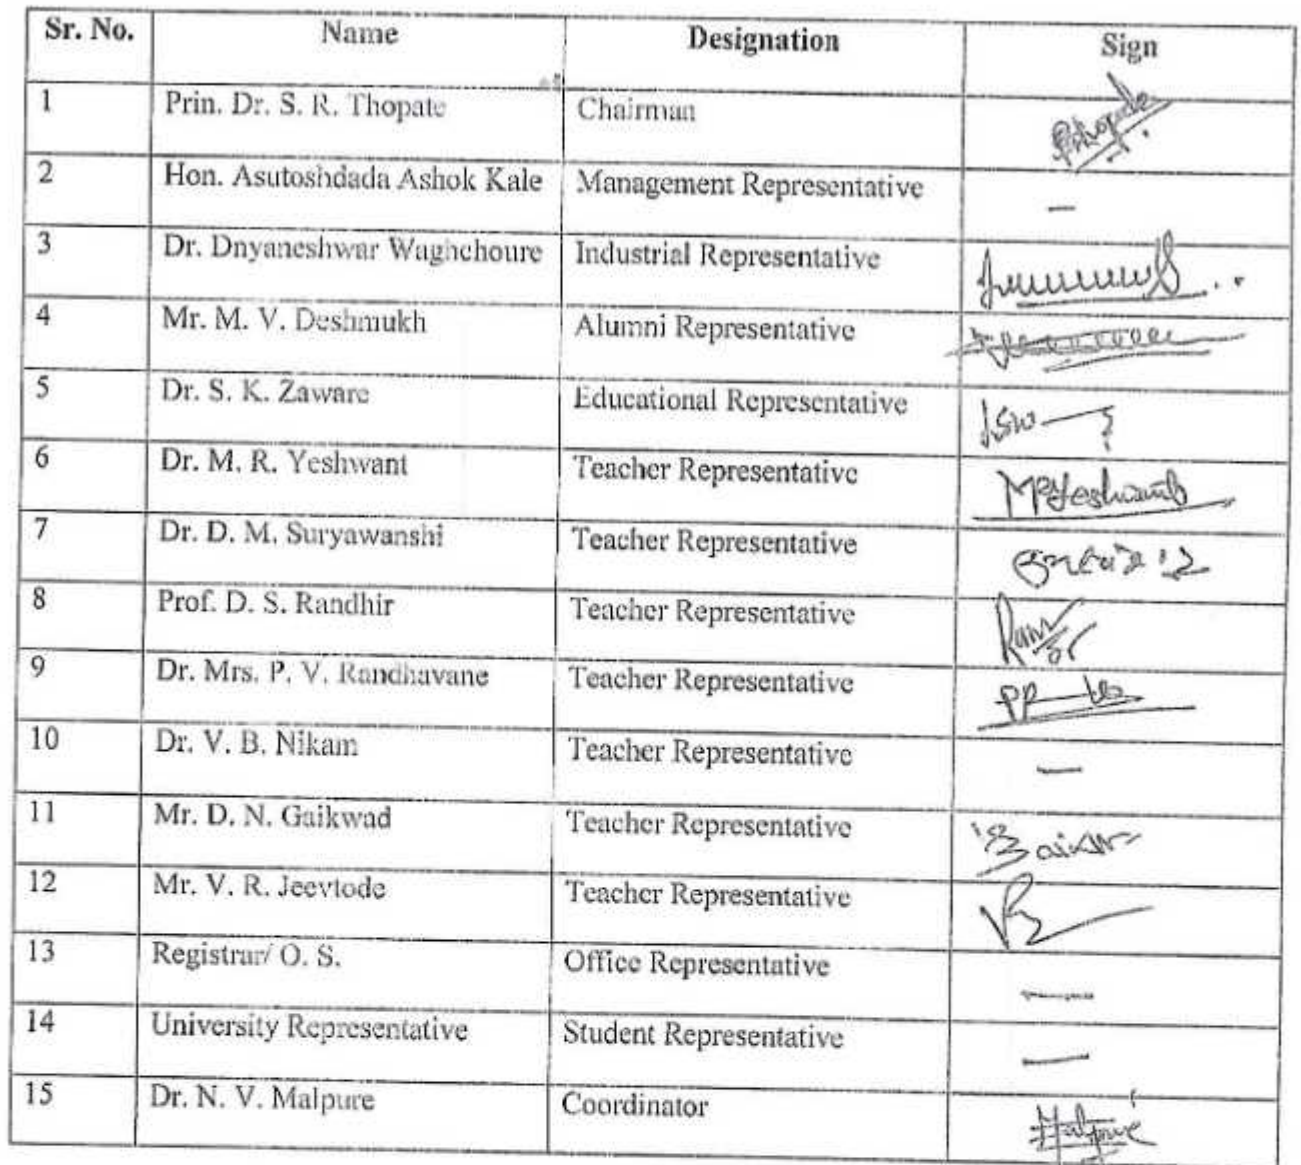 Sr. No. Name Designation Sign
1 Prin. Dr. S. R. Thopate Chairman
2 Hon. Asutoshdada Ashok Kale Management Representative —
3 Dr. Dnyaneshwar Waghchoure Industrial Representative
4 Mr. M. V. Deshmukh Alumni Representative
5 Dr. S. K. Zaware Educational Representative
6 Dr. M. R. Yeshwant Teacher Representative MRYeshwant
7 Dr. D. M. Suryawanshi Teacher Representative
8 Prof. D. S. Randhir Teacher Representative
9 Dr. Mrs. P. V. Randhavane Teacher Representative
10 Dr. V. B. Nikam Teacher Representative —
11 Mr. D. N. Gaikwad Teacher Representative
12 Mr. V. R. Jeevtode Teacher Representative
13 Registrar/ O. S. Office Representative —
14 University Representative Student Representative —
15 Dr. N. V. Malpure Coordinator